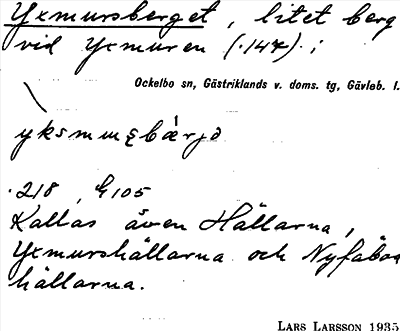 Yxmursberget, litet berg
vid Yxmuren (.147).;
Ockelbo sn, Gästriklands v. doms. tg, Gävleb. l.
.218, G105
Kallas även Hällarna,
Yxmurshällarna och Nyfäboa
hällarna.
LARS LARSSON 1935